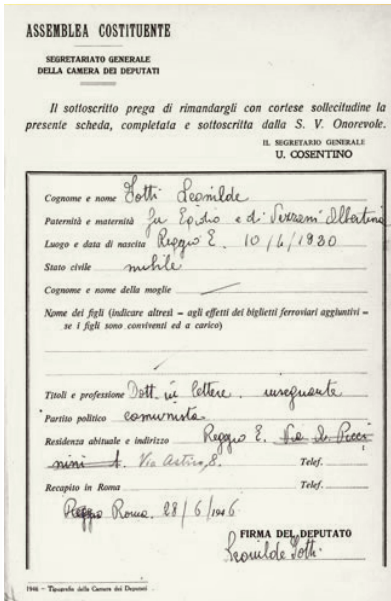 ASSEMBLEA COSTITUENTE
SEGRETARIATO GENERALE
DELLA CAMERA DEI DEPUTATI
Il sottoscritto prega di rimandargli con cortese sollecitudine la
presente scheda, completata e sottoscritta dalla S. V. Onorevole.
IL SEGRETARIO GENERALE
U. COSENTINO
Cognome e nome Jotti Leonilde
Paternità e maternità fu Egidio e di Vezzani Albertina
Luogo e data di nascita Reggio E. 10/4/1920
Stato civile nubile
Cognome e nome della moglie
Nome dei figli (indicare altresì - agli effetti dei biglietti ferroviari aggiuntivi -
se i figli sono conviventi ed a carico)
Titoli e professione Dott. in lettere. insegnante
Partito politico comunista
Residenza abituale e indirizzo Reggio E. Via
Via Telef.
Recapito in Roma Telef.
Reggio Roma. 28/6/1946
FIRMA DEL DEPUTATO
Leonilde Jotti
1946 - Tipografia della Camera dei Deputati